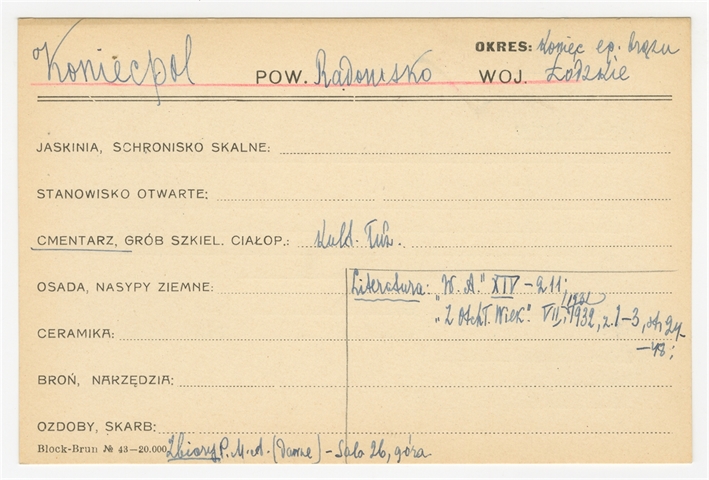 OKRES: Koniec ep. brązu
Koniecpol POW. Radomsko WOJ. Łódzkie
JASKINIA, SCHRONISKO SKALNE:
STANOWISKO OTWARTE:
CMENTARZ, GRÓB SZKIEL. CIAŁOP.: Kult. Łuż.
OSADA, NASYPY ZIEMNE:
Literatura: "W. A." XIV – 211;
"Z Otchł. Wiek." VII, 1932, z. 1–3, str. 24
–48;
CERAMIKA:
BROŃ, NARZĘDZIA:
OZDOBY, SKARB:
Block-Brun № 43—20.000 Zbiory P. M. A. (dawne) – Sala 26, góra.